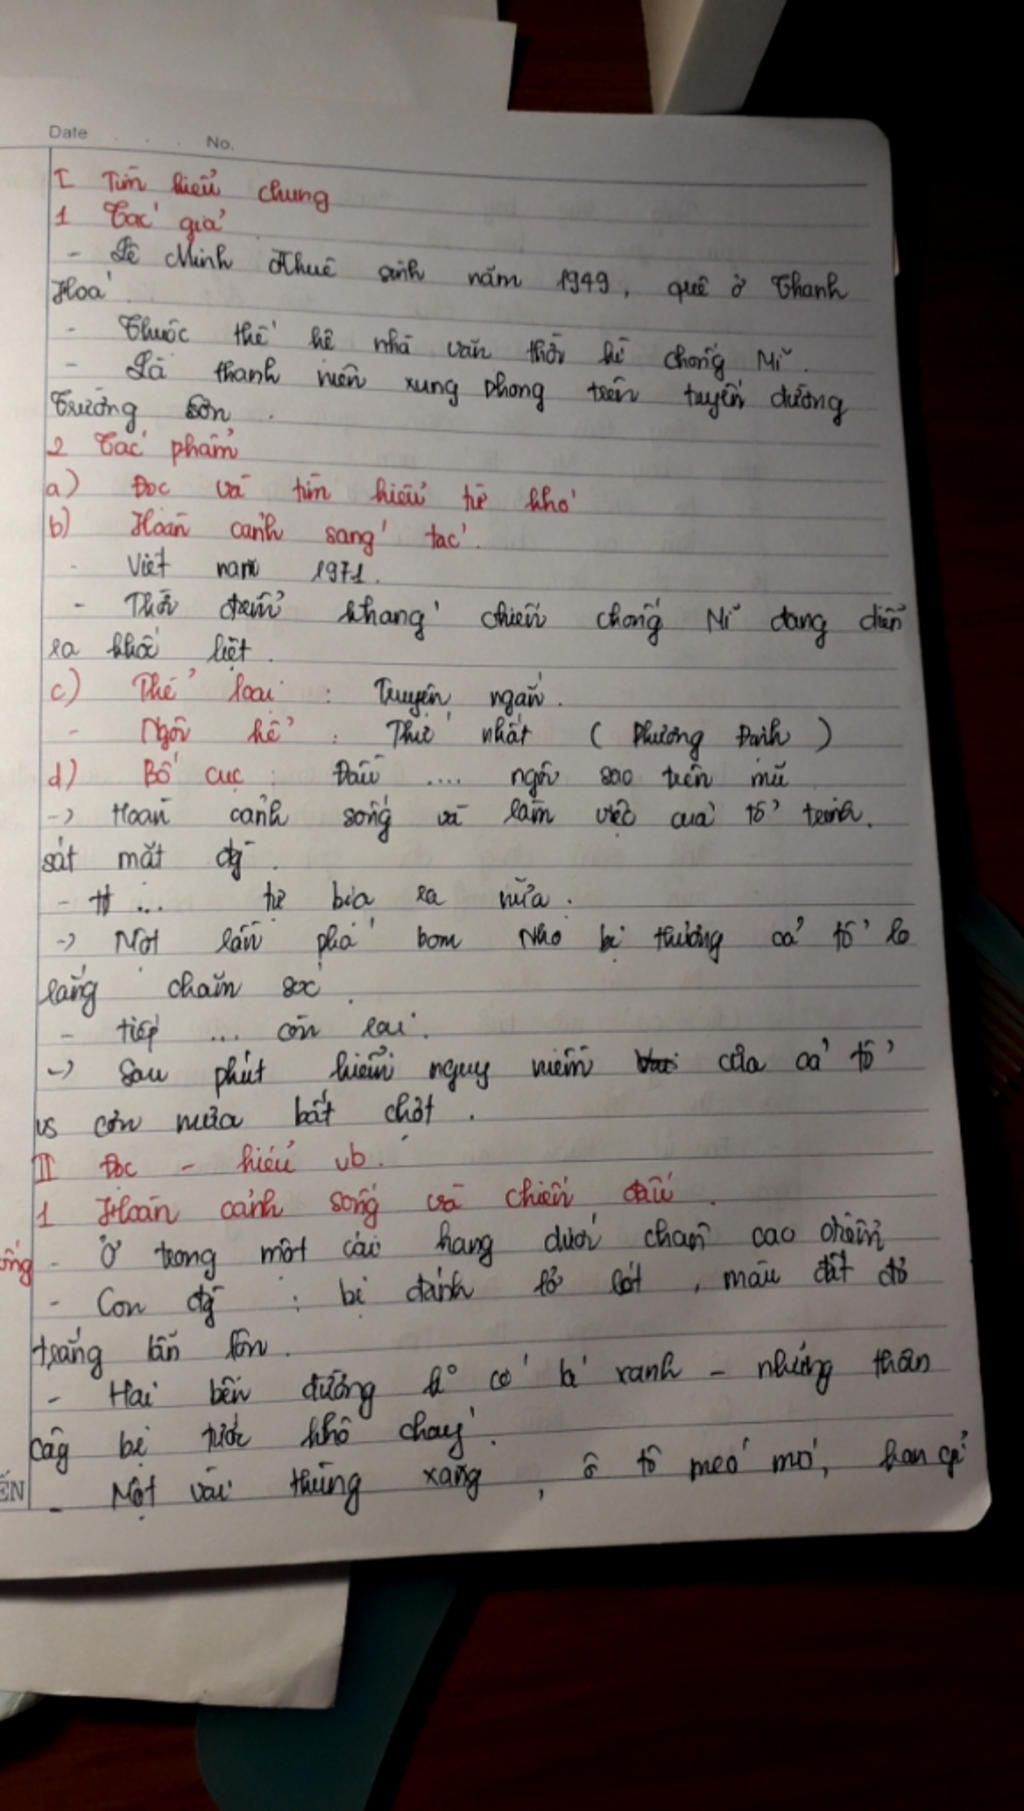 Date . . . . No.
I Tìm hiểu chung
1 Tác giả
- Lê Minh Khuê sinh năm 1949, quê ở Thanh
Hoá.
- Thuộc thế hệ nhà văn thời kì chống Mĩ.
- Là thanh niên xung phong trên tuyến đường
Trường Sơn.
2 Tác phẩm
a) Đọc và tìm hiểu từ khó
b) Hoàn cảnh sáng tác.
- Viết năm 1971.
- Thời điểm kháng chiến chống Mĩ đang diễn
ra khốc liệt.
c) Thể loại : Truyện ngắn.
- Ngôi kể : Thứ nhất ( Phương Định )
d) Bố cục : Đầu .... ngôi sao trên mũ
-> Hoàn cảnh sống và làm việc của tổ trinh
sát mặt đg.
- tt ... từ bia ra nữa.
-> Một lần phá bom Nho bị thương cả tổ lo
lắng chăm sóc.
- tiếp ... còn lại.
-> Sau phút hiểm nguy niềm của cả tổ
vs cơn mưa bất chợt.
II Đọc - hiểu vb.
1 Hoàn cảnh sống và chiến đấu.
- Ở trong một cái hang dưới chân cao điểm
- Con đg : bị đánh lở loét, màu đất đỏ
trắng lẫn lộn.
- Hai bên đường k° có lá xanh - những thân
cây bị tước khô cháy.
- Một vài thùng xăng, ô tô méo mó, han gỉ